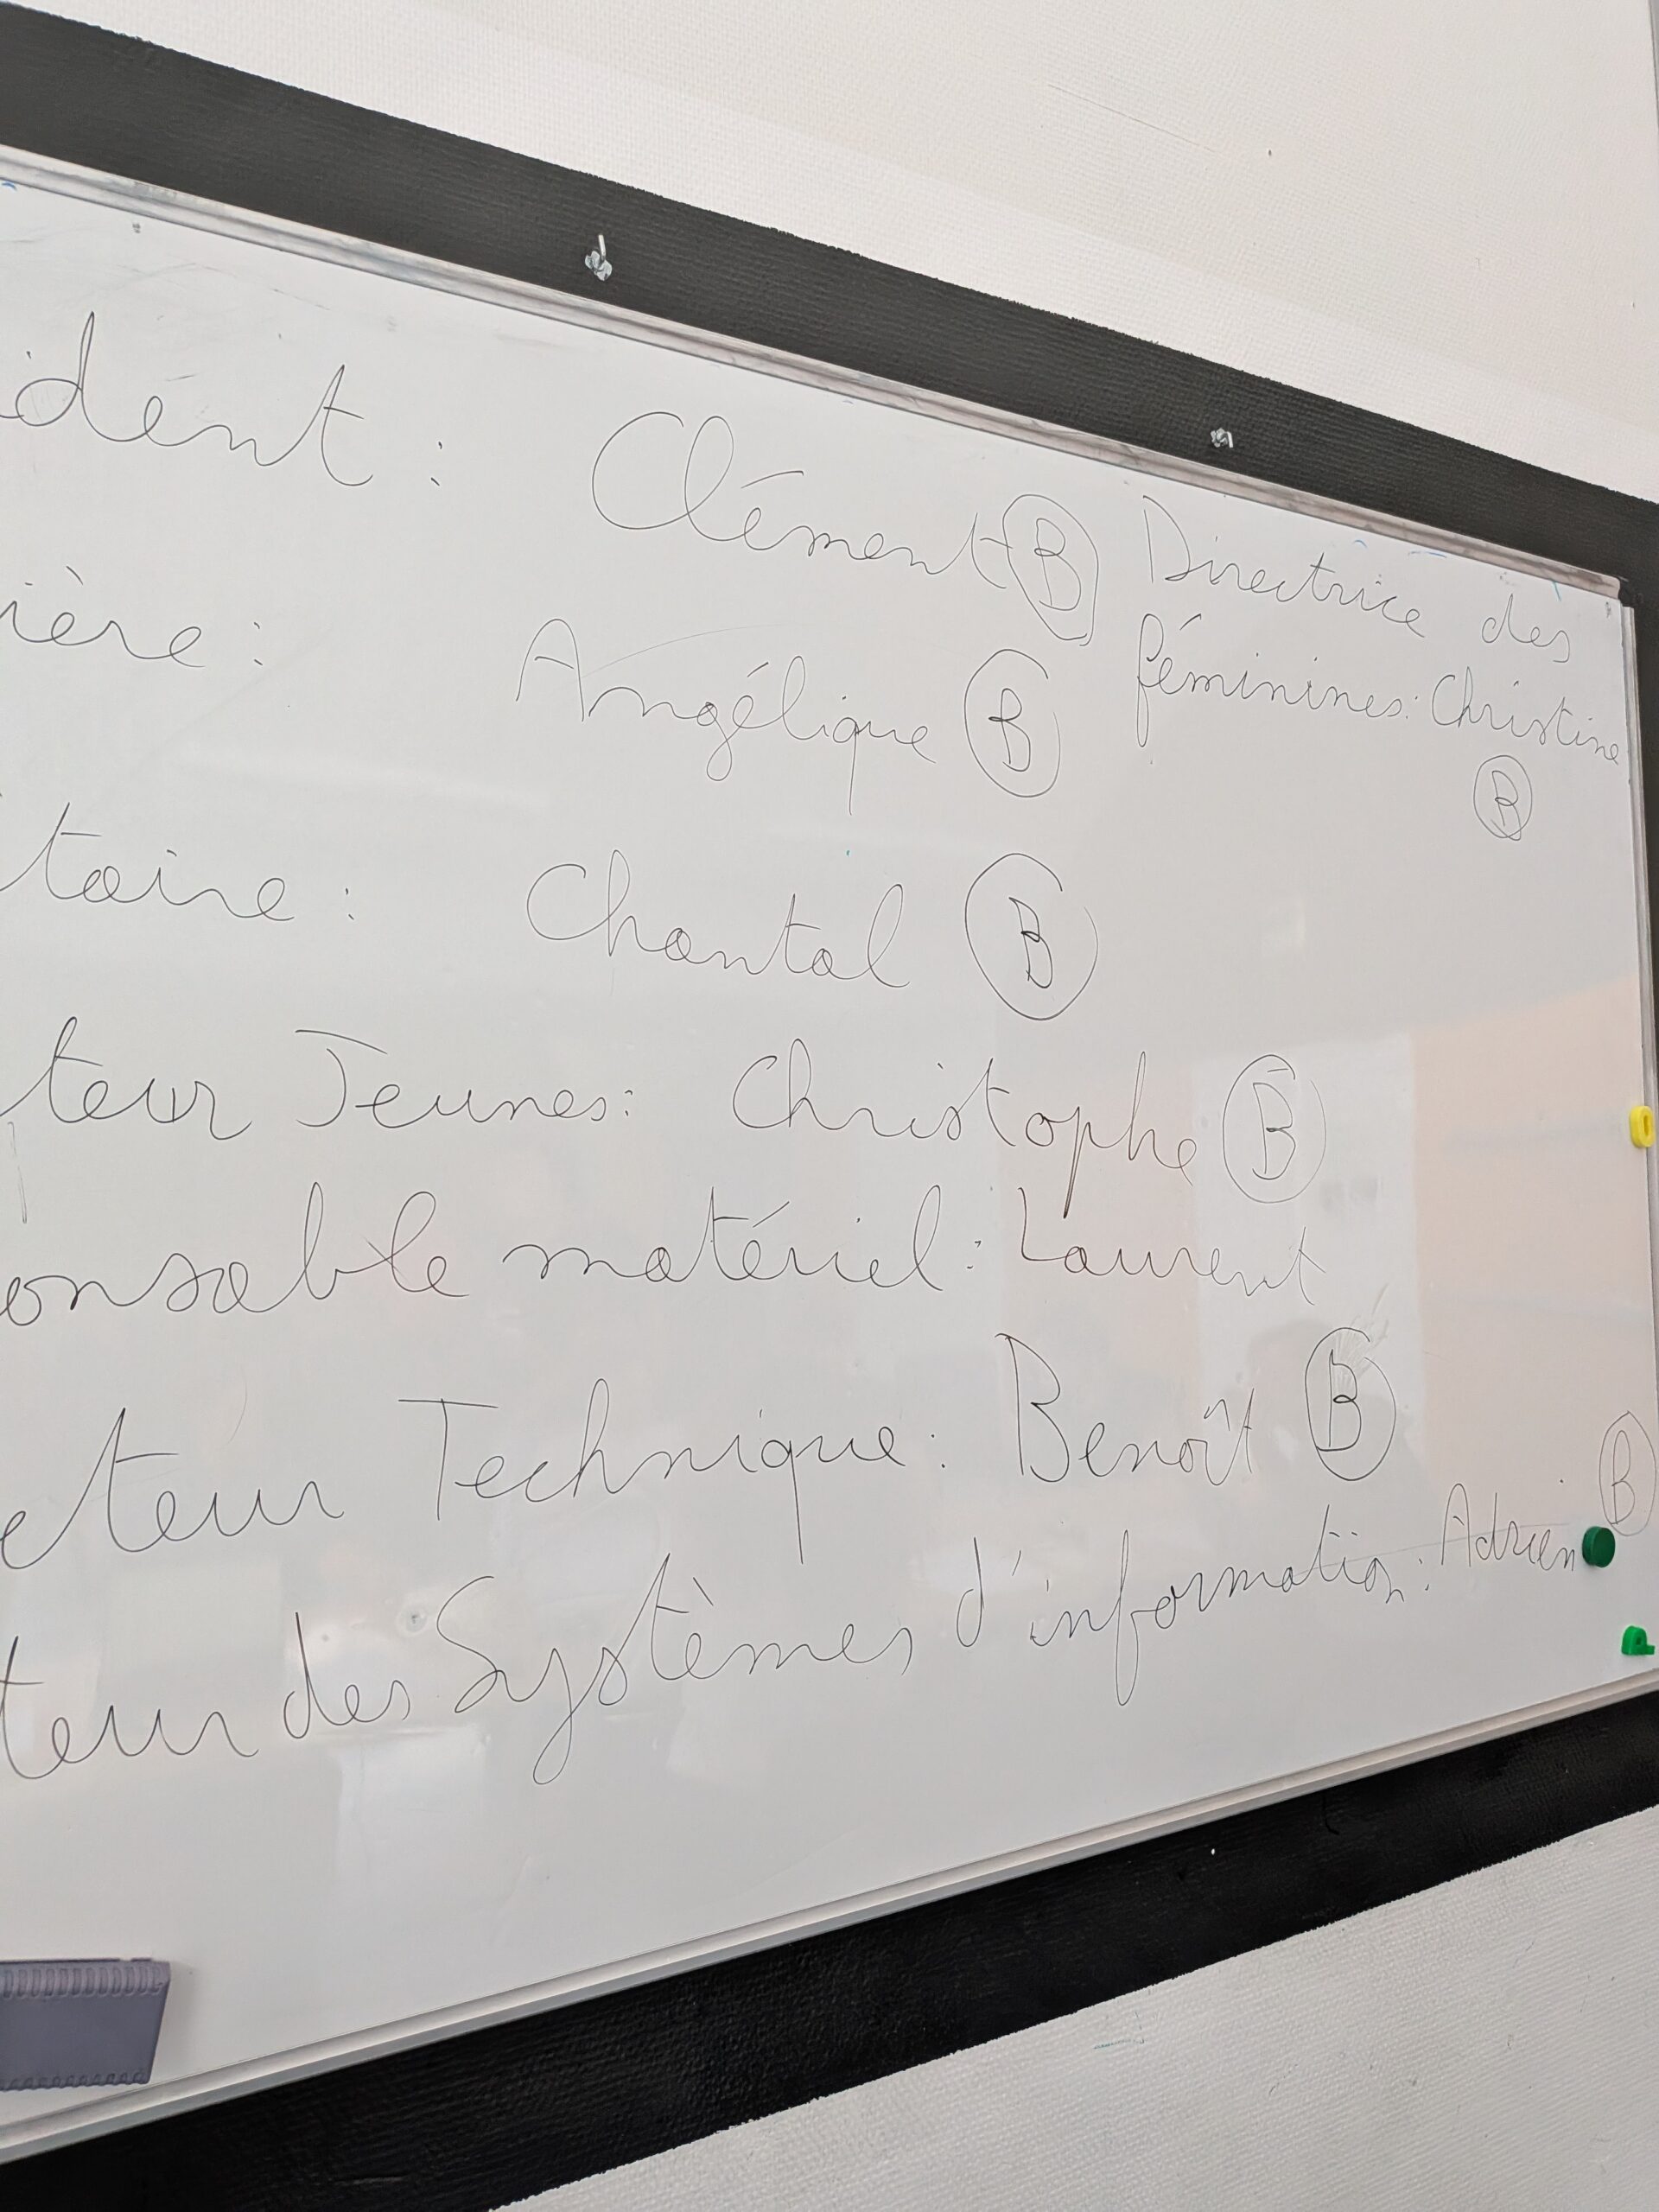 ident : Clément B
Directrice des
féminines : Christine
B
ière : Angélique B
taire : Chantal B
teur Jeunes : Christophe B
onsable matériel : Laurent
cteur Technique : Benoît B
teur des Systèmes d'information : Adrien B